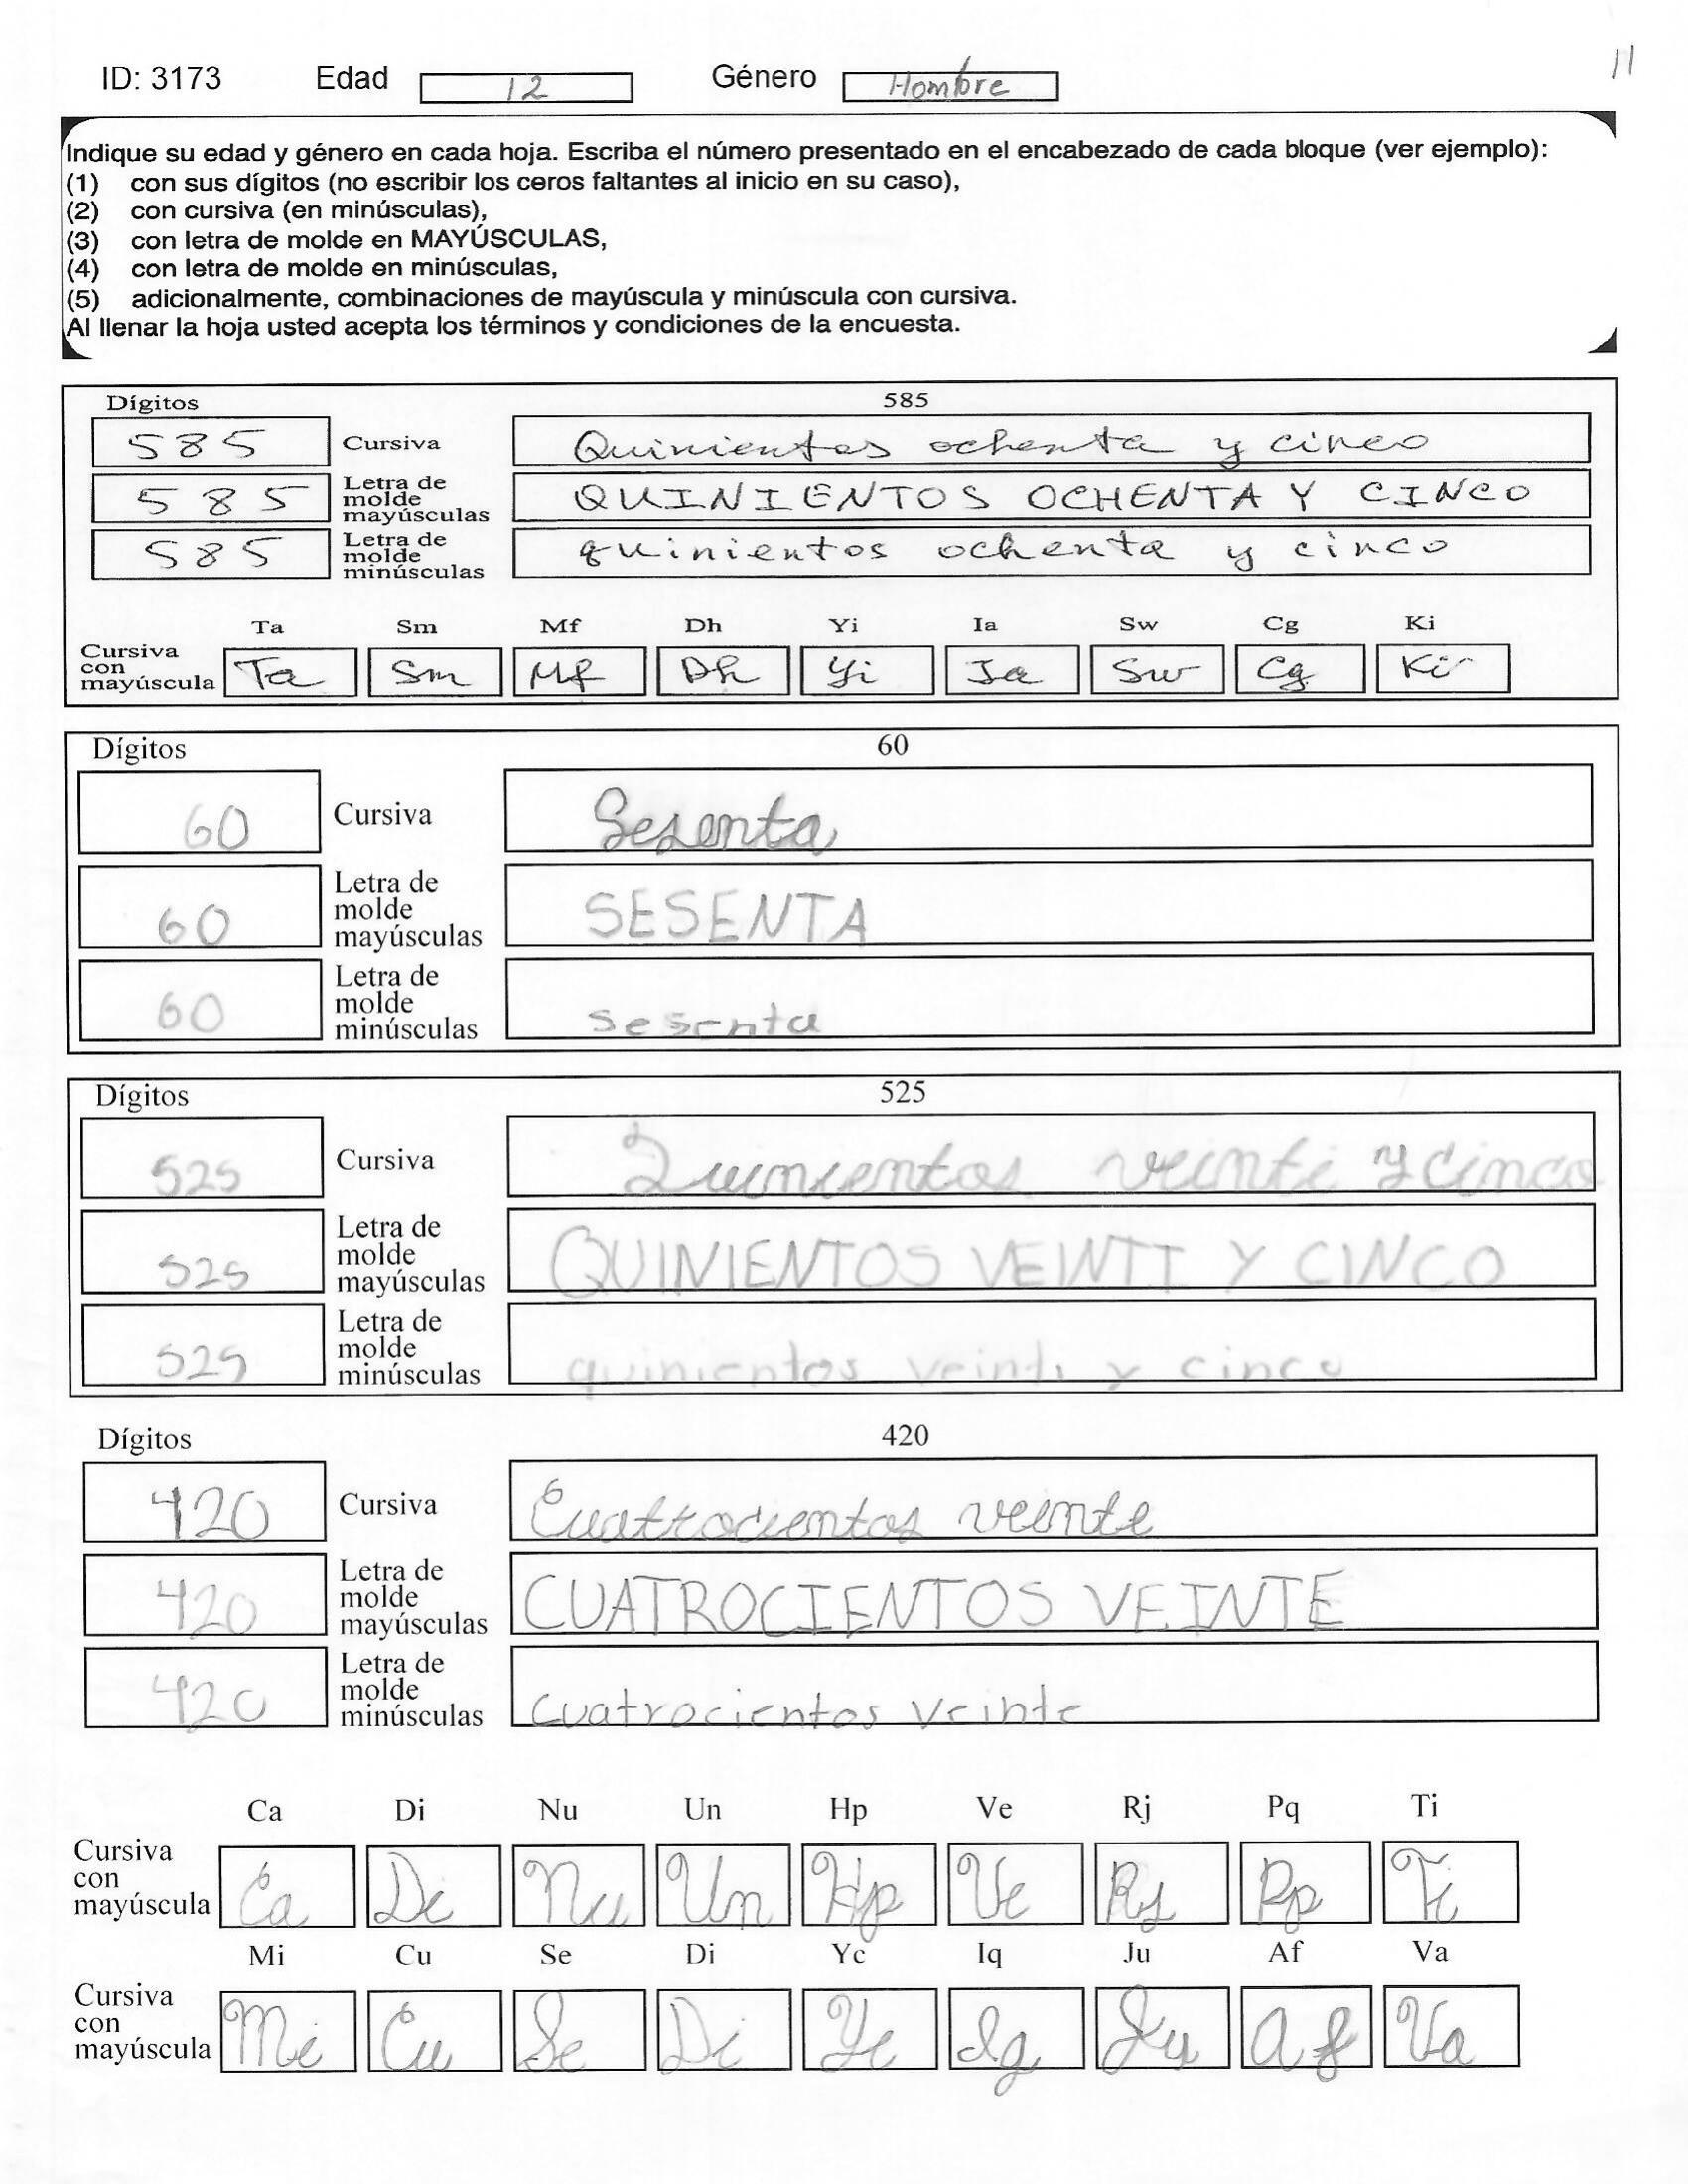 11
ID: 3173 Edad 12 Género Hombre
Indique su edad y género en cada hoja. Escriba el número presentado en el encabezado de cada bloque (ver ejemplo):
(1) con sus dígitos (no escribir los ceros faltantes al inicio en su caso),
(2) con cursiva (en minúsculas),
(3) con letra de molde en MAYÚSCULAS,
(4) con letra de molde en minúsculas,
(5) adicionalmente, combinaciones de mayúscula y minúscula con cursiva.
Al llenar la hoja usted acepta los términos y condiciones de la encuesta.
Dígitos 585
585 Cursiva Quinientos ochenta y cinco
585 Letra de molde mayúsculas QUINIENTOS OCHENTA Y CINCO
585 Letra de molde minúsculas quinientos ochenta y cinco
Ta Sm Mf Dh Yi Ia Sw Cg Ki
Cursiva con mayúscula Ta Sm Mf Dh Yi Ia Sw Cg Ki
Dígitos 60
60 Cursiva Sesenta
60 Letra de molde mayúsculas SESENTA
60 Letra de molde minúsculas sesenta
Dígitos 525
525 Cursiva Quinientos veinti y cinco
525 Letra de molde mayúsculas QUINIENTOS VEINTI Y CINCO
525 Letra de molde minúsculas quinientos veinti y cinco
Dígitos 420
420 Cursiva Cuattrocientos veinte
420 Letra de molde mayúsculas CUATROCIENTOS VEINTE
420 Letra de molde minúsculas cuatrocientos veinte
Ca Di Nu Un Hp Ve Rj Pq Ti
Cursiva con mayúscula Ca Di Nu Un Hp Ve Rj Pp Ti
Mi Cu Se Di Yc Iq Ju Af Va
Cursiva con mayúscula Mi Cu Se Di Yc Iq Ju Af Va